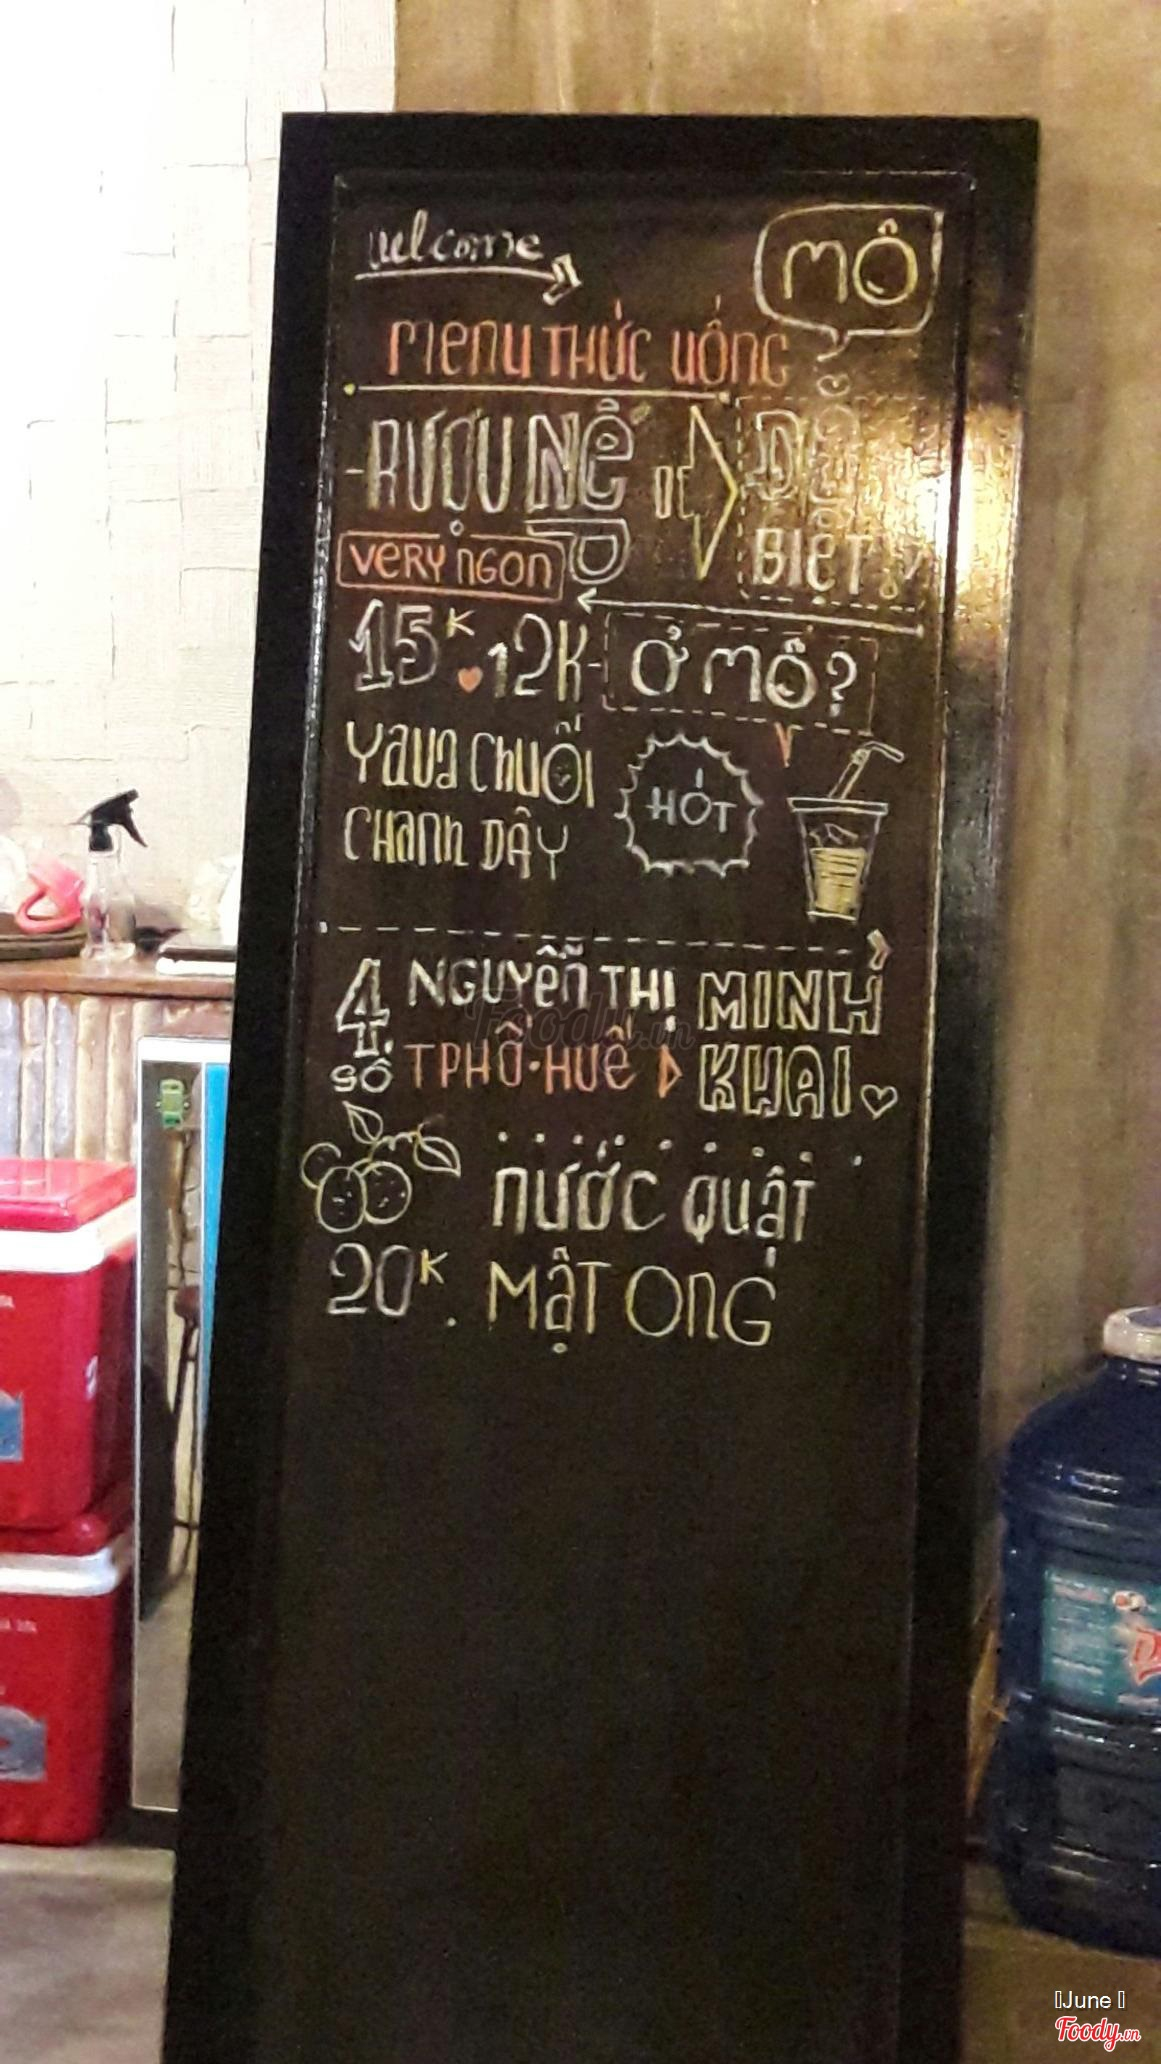 welcome
MÔ
MENU THỨC UỐNG
-RƯỢU NẾP
ĐỂ
BIỆT!
VERY NGON
15K 12K- Ở MÔ?
YAUA CHUỐI
CHANH DÂY
HÓT
SỐ 4. NGUYỄN THỊ MINH KHAI
TPHỐ·HUẾ
NƯỚC QUẬT
20K. MẬT ONG
Foody.vn
June
Foody.vn